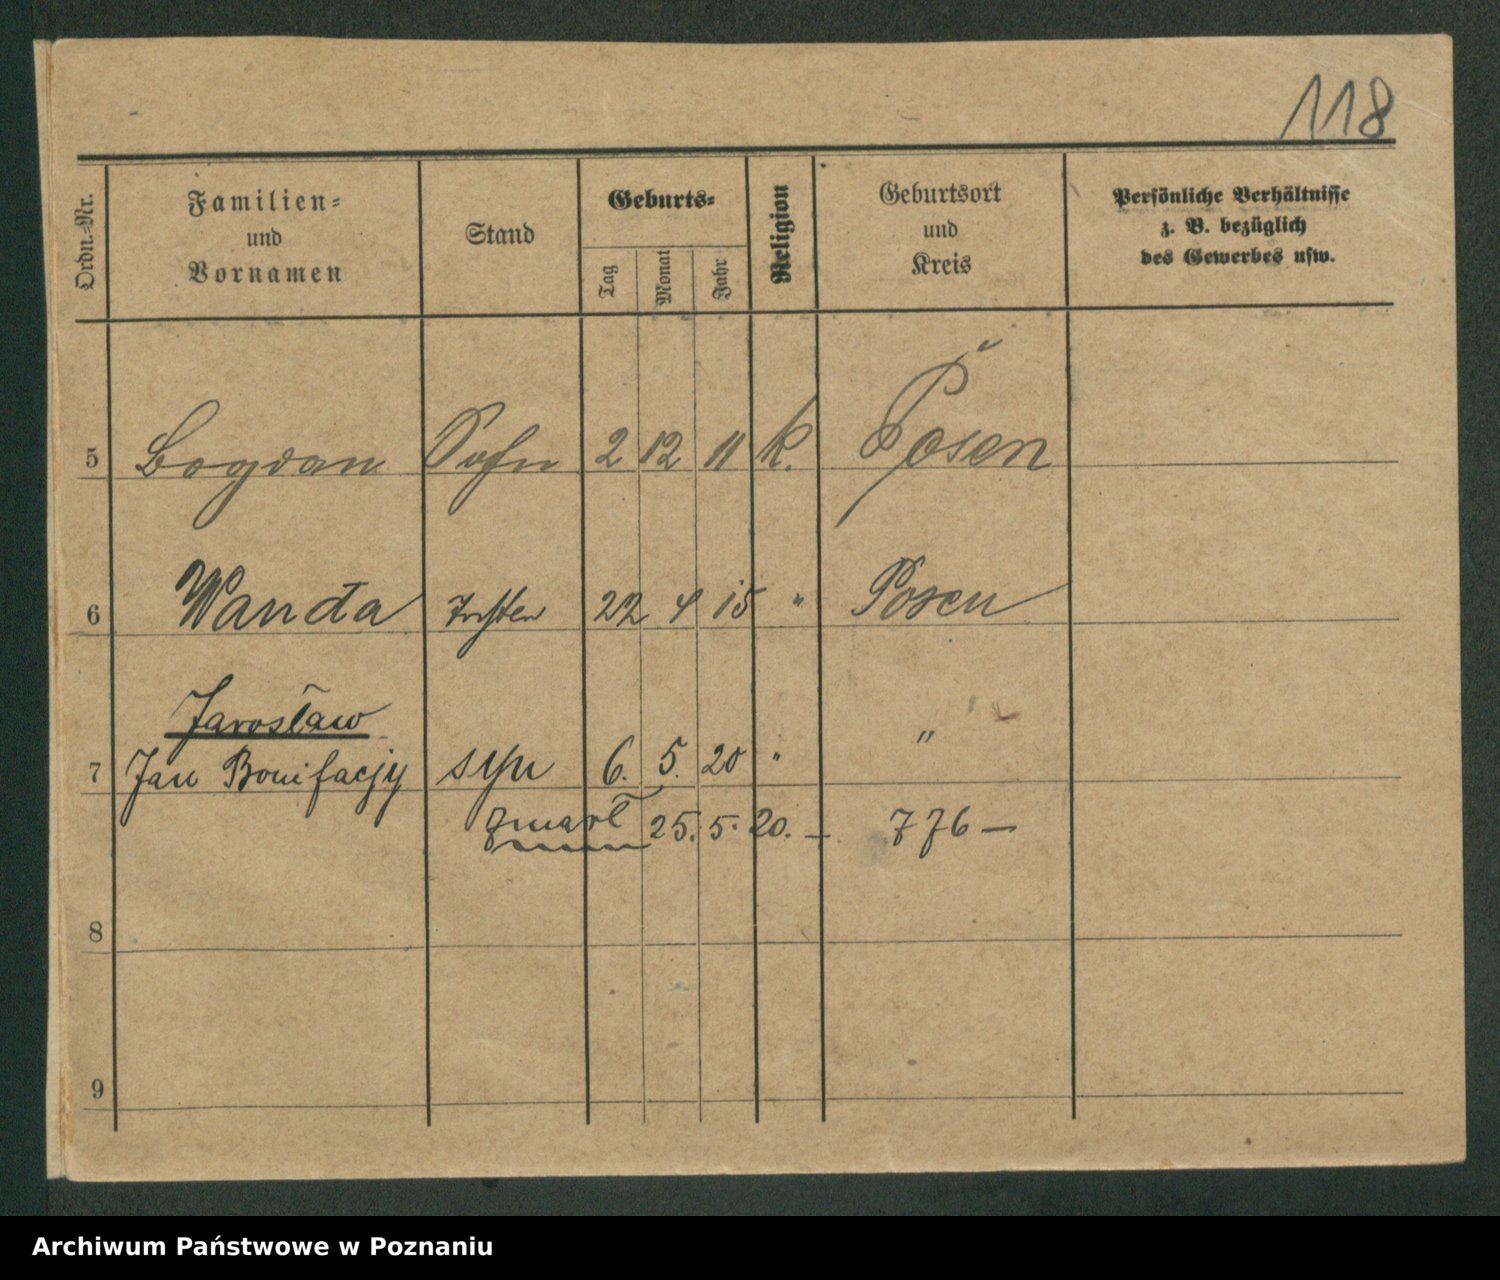 118
Ordn.-Nr.
Familien-
und
Vornamen
Stand
Geburts-
Tag
Monat
Jahr
Religion
Geburtsort
und
Kreis
Persönliche Verhältnisse
z. B. bezüglich
des Gewerbes usw.
5 Bogdan Sohn 2 12 11 k. Posen
6 Wanda Tochter 22 4 15 " Posen
Jarosław
7 Jan Bonifacjy syn 6. 5. 20 " "
zmarł 25. 5. 20. — 776 —
8
9
Archiwum Państwowe w Poznaniu